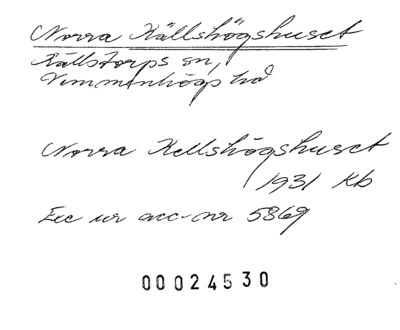 Norra Källshögshuset
Källstorps sn,
Vemmenhögs hd
Norra Kellshögshuset
1931 Kb
Exc ur acc-nr 5869
00024530